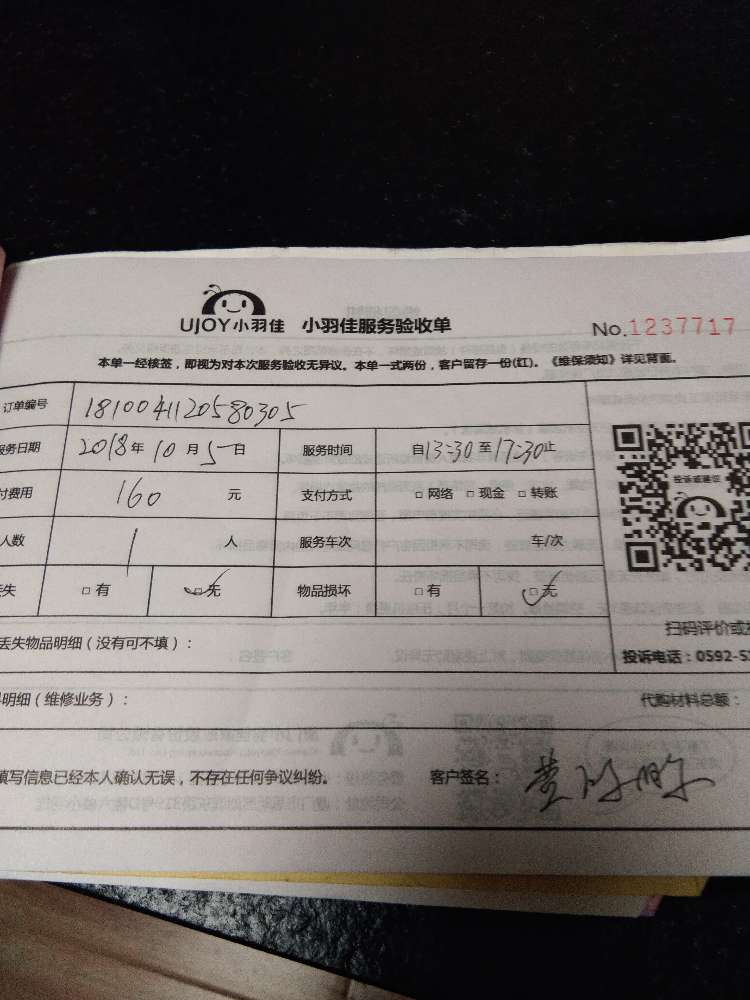 UJOY小羽佳 小羽佳服务验收单 No.1237717
本单一经核签，即视为对本次服务验收无异议。本单一式两份，客户留存一份(红)。《维保须知》详见背面。
订单编号 1810041120580305
服务日期 2018年10月5日 服务时间 自13:30至17:30止
付费用 160 元 支付方式 □网络 □现金 □转账
人数 1 人 服务车次 车/次
失 □有 □无 物品损坏 □有 □无
投诉或建议
扫码评价或
丢失物品明细（没有可不填）： 投诉电话：0592-5
明细（维修业务）： 代购材料总额：
填写信息已经本人确认无误，不存在任何争议纠纷。 客户签名：